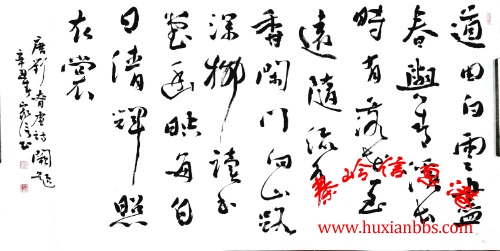 道由白雲盡
春與青溪長
時有落花至
遠隨流水
香閑門向山路
深柳讀書
堂幽映每白
日清輝照
衣裳
唐劉昚虛詩闕題
www.huxianbbs.com